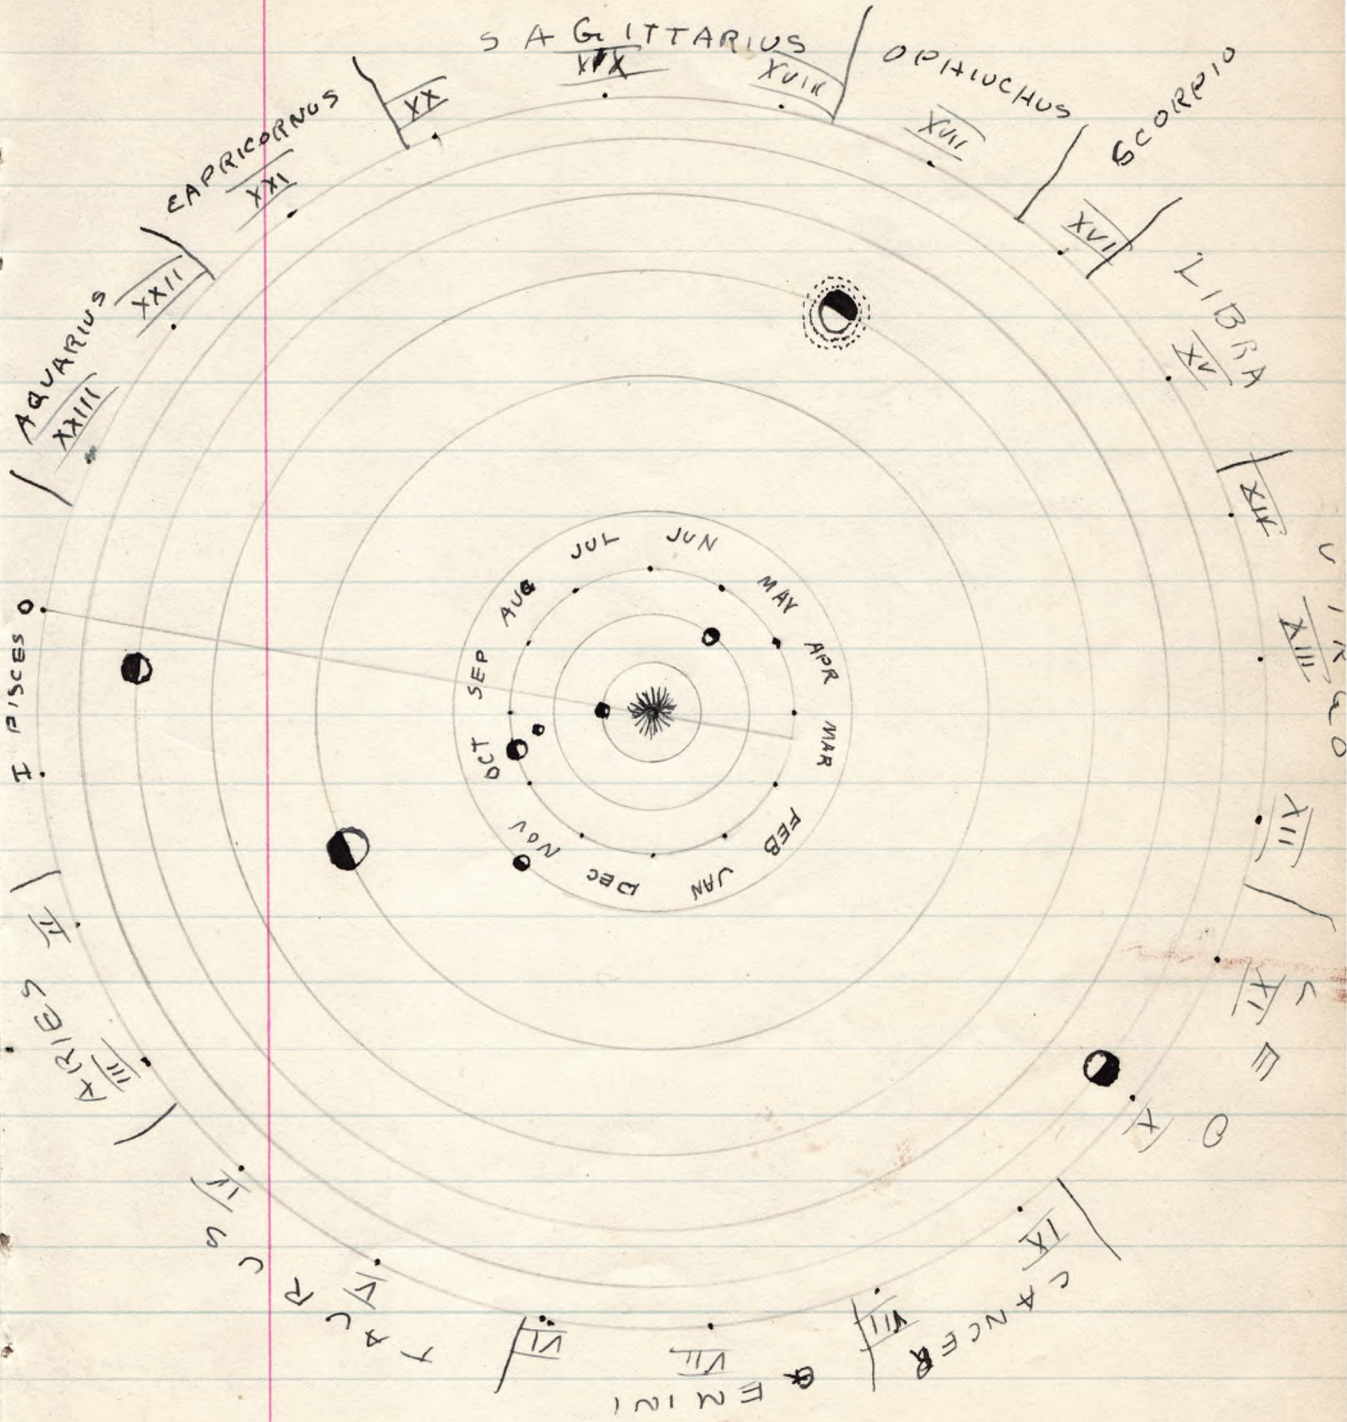 SAGITTARIUS
XIX
XVIII
OPHIUCHUS
XVII
SCORPIO
XVI
LIBRA
XV
XIV
VIRGO
XIII
XII
LEO
XI
X
CANCER
IX
VIII
GEMINI
VII
VI
TAURUS
V
IV
ARIES
III
II
PISCES
I
O
AQUARIUS
XXIII
XXII
CAPRICORNUS
XXI
XX
JUN
MAY
APR
MAR
FEB
JAN
DEC
NOV
OCT
SEP
AUG
JUL